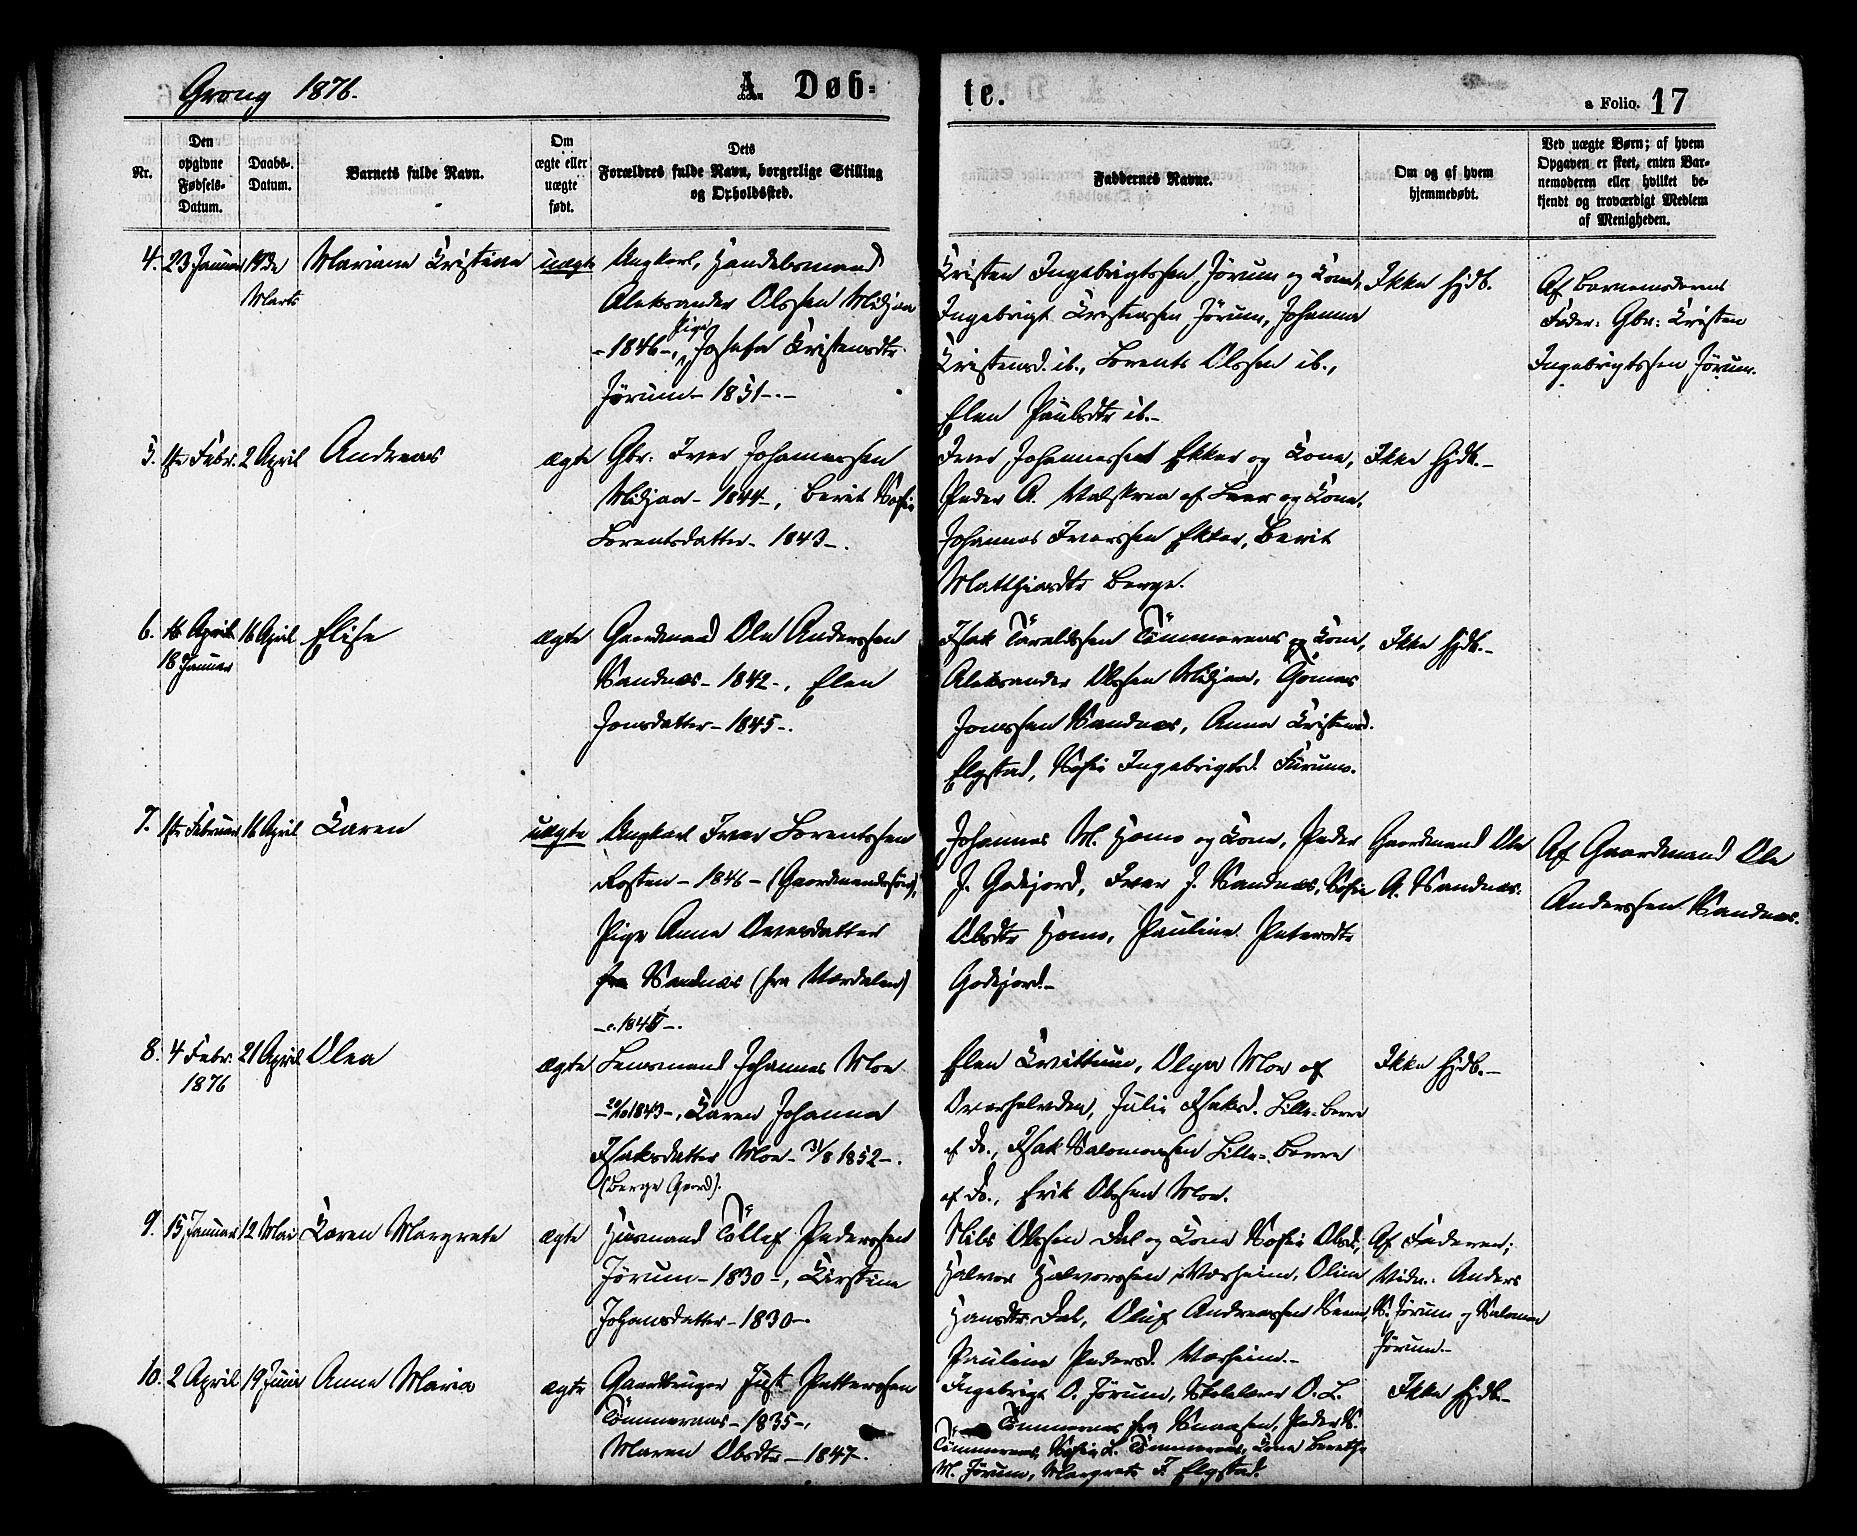 Grong 1876.
A. Døb-
te.
a Folio. 17
Nr.
Den opgivne Fødsels-Datum.
Daabs-Datum.
Barnets fulde Navn.
Om ægte eller uægte født.
Dets Forældres fulde Navn, borgerlige Stilling og Opholdssted.
Faddernes Navne.
Om og af hvem hjemmedøbt.
Ved uægte Børn; af hvem Opgaven er skeet, enten Barnemoderen eller hvilket bekjendt og troværdigt Medlem af Menigheden.
4. 23 Januar 19de Marts
Mariane Kristine
uægte
Ungkarl, Handelsmand
Aleksander Olssen Midjaa
- 1846 -, Pige Josefa Kristensdtr
Jørum - 1851 -.-
Kristen Ingebrigtssen Jørum og Kone,
Ingebrigt Kristenssen Jørum, Johanna
Kristensd. ib., Lorents Olssen ib.,
Elen Paulsdtr ib.-
Ikke Hjdb.
Af Barnemoderens
Fader: Gbr: Kristen
Ingebrigtssen Jørum.
5. 1ste Febr. 2 April
Andreas
ægte
Gbr. Iver Johannessen
Midjaa - 1844 -, Berit Sofie
Lorentsdatter - 1843 -.
Iver Johannessen Ekker og Kone,
Peder A. Valskraa af Snaasen og Kone,
Johannes Iverssen Ekker, Berit
Matthiasdtr Berge.
Ikke Hjdb.-
6. 16 April 16 April
18 Januar
Elise
ægte
Gaardmand Ole Anderssen
Sandnæs - 1842 -, Elen
Jonsdatter - 1845 -.
Isak Taraldssen Tömmeraas og Kone,
Aleksander Olssen Midjaa, Gunnar
Jonssen Sandnæs, Anna Kristensd.
Elgstad, Sofie Ingebrigtsd. Furunes.
Ikke Hjdb.-
7. 1ste Februar 16 April
Karen
uægte
Ungkarl Iver Lorentssen
Rosten - 1846 - (Gaardmandssön),
Pige Anne Oversdatter
fra Sandnæs (fra Værdalen)
- c. 184
Johannes M. Homo og Kone, Peder
J. Godejord, Iver J. Sandnæs, Sofie
Olsdtr Homo, Pauline Petersdtr
Godejord.-
Gaardmand Ole
A. Sandnæs.
Af Gaardmand Ole
Anderssen Sandnæs.
8. 4 Febr. 21 April
1876
Olea
ægte
Lensmand Johannes Moe
- 20/10 1843 -, Karen Johanna
Isaksdatter Moe - 31/8 1852 -.
(Berge Gaard).
Elen Kvittum, Olga Moe af
Overhalvden, Julie Isaksd. Lille-Berre
af do., Isak Salomonsen Lille-Berre
af do., Erik Olssen Moe.
Ikke Hjdb.-
9. 15 Januar 12 Mai
Karen Margrete
ægte
Husmand Töllef Pederssen
Jörum - 1830 -, Kirstine
Johansdatter - 1830 -.
Nils Olssen Fal og Kone Sofie Olsd.,
Halvor Halvorssen Værheim, Oline
Hansdtr Fal, Oluf Andreassen Seem,
Pauline Pedersd. Værheim.-
Af Faderen;
Vidn.: Anders
S. Jørum og Salomon
Jørum.-
10. 2 April 19 Juni
Anne Maria
ægte
Gaardbruger Just Petterssen
Tömmeraas - 1835 -,
Maren Olsdtr - 1847 -.
Ingebrigt O. Jörum, Skolelærer O. L.
Tömmeraas fra Snaasen, Peder S.
Tömmeraas, Sofie L. Tömmeraas, Kone Berethe
M. Jörum, Margrete J. Elgstad.
Ikke Hjdb.-